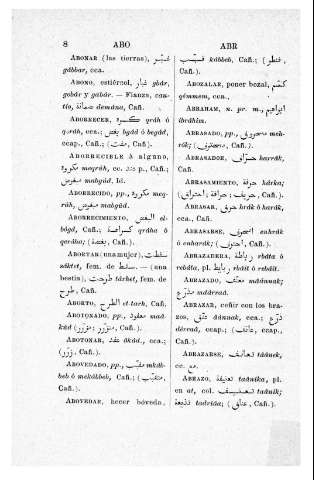 8 ABO
ABR
ABONAR (las tierras), غبّر
gábbar, cca.
ABONO, estiércol, غبار gbár,
gobár y gabár. — Fianza, can-
tio, ضمانة demána, Cañ.
ABORRECER, كره qráh ó
qaráh, cca.; بغض bgád ó begád,
ccap., Cañ.; (مقت, Cañ.).
ABORRECIBLE á alguno,
مكروه meqráh, cc. عند p., Cañ.;
مبغوض mabgúd. Id.
ABORRECIDO, pp., مكروه meq-
ráh, مبغوض mabgúd.
ABORRECIMIENTO, البغض el-
bógd, Cañ.; كراهة qráha ó
qeráha; (بغضة, Cañ.).
ABORTAR (una mujer), سقطت
sáktet, fem. de سقط. — (una
bestia), طرحت tárhet, fem. de
طرح, Cañ.
ABORTO, الطرح et-tarh, Cañ.
ABOTONADO, pp., معقود maá-
kúd (مزرّر, Cañ.).
ABOTONAR, عقد ákád, cca.;
(زرّر, Cañ.).
ABOVEDADO, pp., مقبّب mkáb-
beb ó mekábbeb, Cañ.; (متقبّب,
Cañ.).
ABOVEDAR, hacer bóveda,
قبّب kábbeb, Cañ.; (قنطر,
Cañ.).
ABOZALAR, poner bozal, كمّم
qémmem, cca.
ABRAHAM, n. pr. m., ابراهيم
ibrāhim.
ABRASADO, pp., محروق mah-
rúk;
ABRASADOR, حرّاق harrák,
Cañ.
ABRASAMIENTO, حرقة hárka;
(حريق; حراقة, Cañ.).
ABRASAR, حرق hrák ó harák,
cca., Cañ.
ABRASARSE, انحرق enhrák
ó enharák; (احترق, Cañ.).
ABRAZADERA, رباطة rbáta ó
rebáta, pl. ربايط rbáit ó rebáit.
ABRAZADO, معنّف maánnag,
مدرّع mdárraâ.
ABRAZAR, ceñir con los bra-
zos, عنّق áánnak, cca.; درّع
dárraâ, ccap.; (عانق, ccap.,
Cañ.).
ABRAZARSE, تعانق taánek,
cc. مع.
ABRAZO, تعنيقة taánika, pl.
en at, col. تعنيق taánik;
تدريعة tadriáa; (عناق, Cañ.).